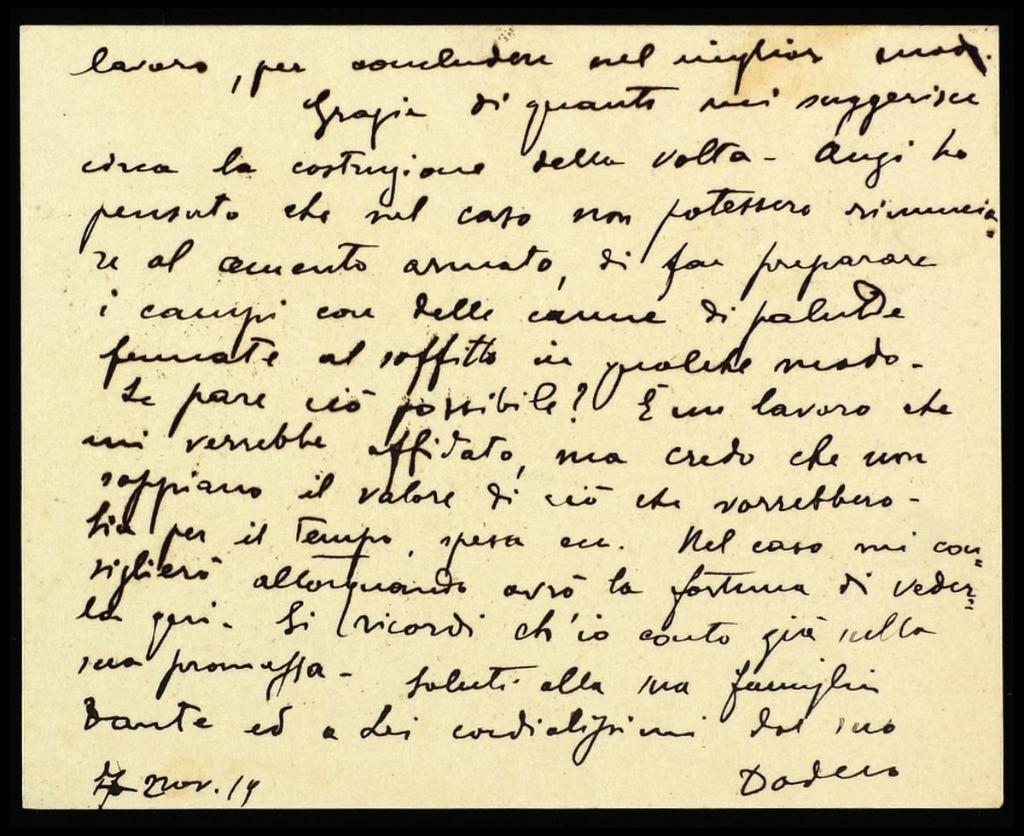 lavoro, per concludere nel miglior modo.
Grazie di quanto mi suggerisce
circa la costruzione della volta - Anzi ho
pensato che nel caso non potessero rinuncia=
re al cemento armato, di far preparare
i campi con delle canne di palude
fermate al soffitto in qualche modo -
Le pare ciò possibile? È un lavoro che
mi verrebbe affidato, ma credo che non
sappiano il valore di ciò che vorrebbero -
Sia per il tempo, spesa ecc. Nel caso mi con=
siglierò allorquando avrò la fortuna di veder=
la qui - Si ricordi ch'io conto già sulla
sua promessa - Saluti alla sua famiglia
Dante ed a Lei cordialissimi dal suo
nov. 19 Dodero